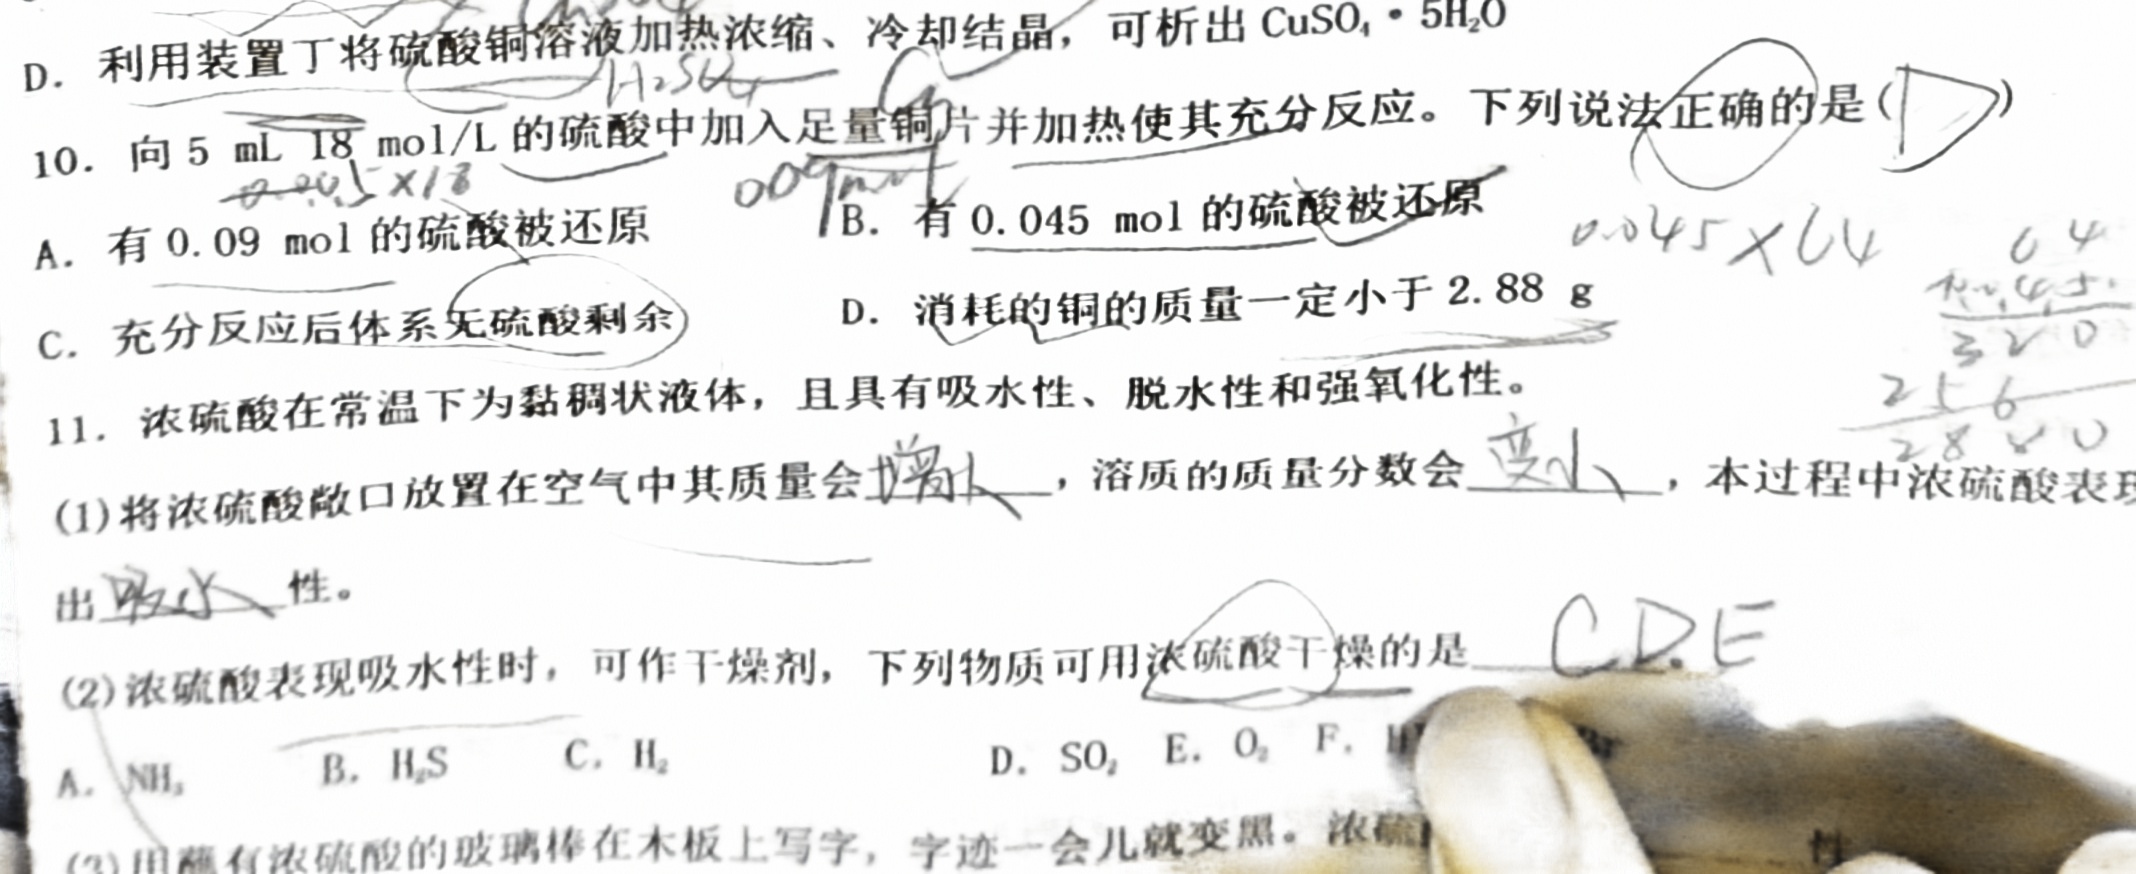 D. 利用装置丁将硫酸铜溶液加热浓缩、冷却结晶，可析出 CuSO₄·5H₂O
H₂SO₄
10. 向 5 mL 18 mol/L 的硫酸中加入足量铜片并加热使其充分反应。下列说法正确的是(D)
A. 有 0.09 mol 的硫酸被还原
B. 有 0.045 mol 的硫酸被还原
0.045×64
C. 充分反应后体系无硫酸剩余
D. 消耗的铜的质量一定小于 2.88 g
320
256
2880
11. 浓硫酸在常温下为黏稠状液体，且具有吸水性、脱水性和强氧化性。
(1)将浓硫酸敞口放置在空气中其质量会增大，溶质的质量分数会变小，本过程中浓硫酸表现
出吸水性。
(2)浓硫酸表现吸水性时，可作干燥剂，下列物质可用浓硫酸干燥的是 CDE
A. NH₃ B. H₂S C. H₂ D. SO₂ E. O₂ F.
(3)用蘸有浓硫酸的玻璃棒在木板上写字，字迹一会儿就变黑。浓硫 性